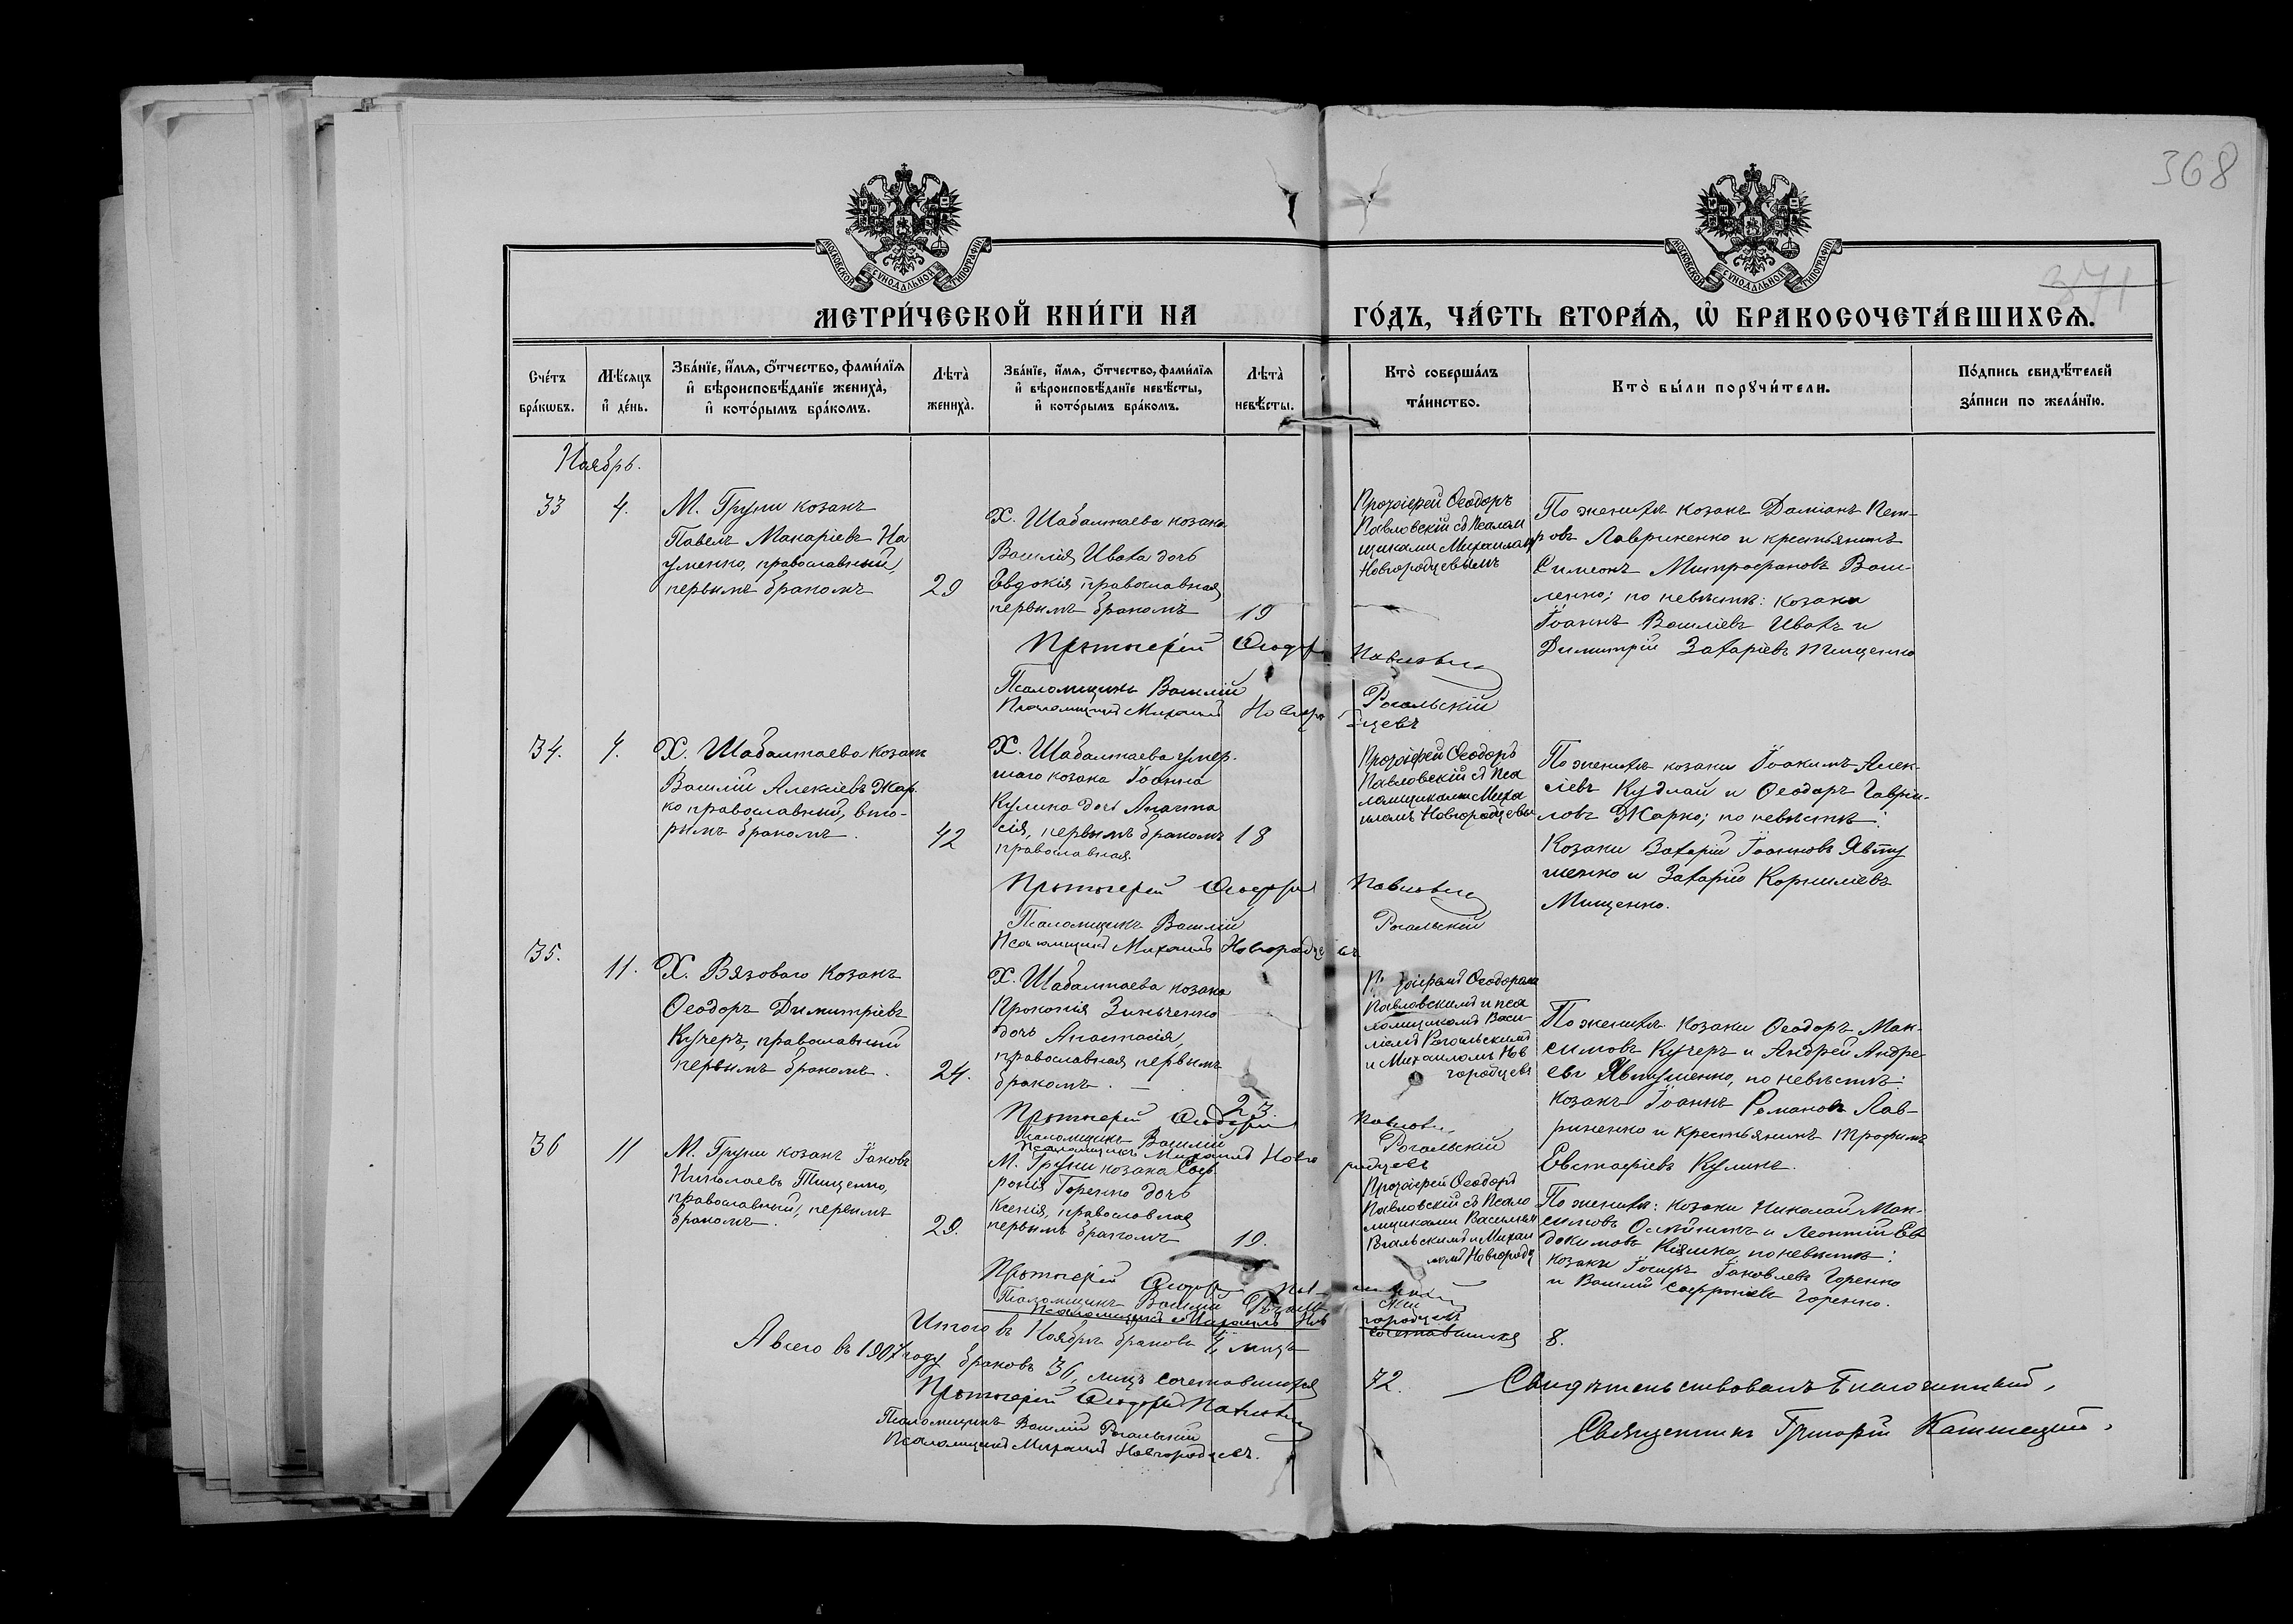 368
МОСКОВСКОЙ СУНОДАЛЬНОЙ ТИПОГРАФІИ
МОСКОВСКОЙ СУНОДАЛЬНОЙ ТИПОГРАФІИ
371
МЕТРИ́ЧЕСКОЙ КНИ́ГИ НА ГО́ДЪ, ЧА́СТЬ ВТОРА́Я, Ѡ҆ БРАКОСОЧЕТА́ВШИХСЯ.
Сче́тъ бра́кѡвъ.
Мѣ́сяцъ и҆ де́нь.
Зва́нїе, и҆́мя, ѻ҆́тчество, фами́лїя
и҆ вѣроисповѣ́данїе жениха̀,
и҆ кото́рымъ бра́комъ.
Лѣта̀ жениха̀.
Зва́нїе, и҆́мя, ѻ҆́тчество, фами́лїя
и҆ вѣроисповѣ́данїе невѣ́сты,
и҆ кото́рымъ бра́комъ.
Лѣта̀ невѣ́сты.
Кто̀ соверша́лъ
та́инство.
Кто̀ бы́ли порꙋчи́тели.
По́дпись свидѣ́телей
за́писи по жела́нїю.
Ноябрь.
33
4.
М. Груни козакъ
Павелъ Макаріевъ На
уменко, православный,
первымъ бракомъ
29
Х. Шабалтаева козака
Василія Иваха дочь
Евдокія православная
первымъ бракомъ
19
Протоіерей Ѳеодоръ
Павловскій съ Псалом
щиками Михаиломъ
Новгородцевымъ
По женихѣ козакъ Даміанъ Пет-
ровъ Лавриненко и крестьянинъ
Симеонъ Митрофановъ Васи-
ленко; по невѣстѣ: козаки
Іоаннъ Василіевъ Ивахъ и
Димитрій Захаріевъ Тищенко
Протоіерей Ѳеодоръ Павловскій
Псаломщикъ Василій Рогальскій
Псаломщикъ Михаилъ Новгородцевъ
34.
4.
Х. Шабалтаева козакъ
Василій Алексіевъ Жар
ко православный, вто-
рымъ бракомъ.
42
Х. Шабалтаева умер-
шаго козака Іоанна
Кулика дочь Анаста
сія, первымъ бракомъ
православная.
18
Протоіерей Ѳеодоръ
Павловскій съ Пса
ломщикомъ Миха
иломъ Новгородцевы
По женихѣ козаки Іоакимъ Алек-
сіевъ Кудлай и Ѳеодоръ Гаврии-
ловъ Жарко; по невѣстѣ:
Козаки Захарій Іоанновъ Явту
шенко и Захарій Корниліевъ
Мищенко.
Протоіерей Ѳеодоръ Павловскій
Псаломщикъ Василій Рогальскій
Псаломщикъ Михаилъ Новгородцевъ
35.
11.
Х. Вязоваго Козакъ
Ѳеодоръ Димитріевъ
Кучеръ, православный
первымъ бракомъ.
24.
Х. Шабалтаева козака
Прокопія Зинченко
дочь Анастасія,
православная первымъ
бракомъ. —
23.
Павловскимъ и пса
ломщикомъ Васи-
ліемъ Рогальскимъ
и Михаиломъ Нов
городцевъ
По женихѣ козаки Ѳеодоръ Мак-
симовъ Кучеръ и Андрей Андре
евъ Явтушенко, по невѣстѣ:
козакъ Іоаннъ Романовъ Лав-
риненко и крестьянинъ Трофимъ
Евстафіевъ Куликъ.
Протоіерей Ѳеодоръ Павловскій
Псаломщикъ Василій Рогальскій
Псаломщикъ Михаилъ Новгородцевъ
36
11
М. Груни козакъ Іаковъ
Николаевъ Тищенко,
православный, первымъ
бракомъ.
29.
М. Груни козака Соф
ронія Горенко дочь
Ксенія, православная
первымъ бракомъ
19.
Протоіерей Ѳеодоръ
Павловскій съ Псало
мщиками Василіемъ
Рогальскимъ и Михаи
ломъ Новгородц
По женихѣ: козаки Николай Мак-
симовъ и Леонтій Ев
докимовъ по невѣстѣ:
козаки Іосифъ Іаковлевъ Горенко
и Василій Софроніевъ Горенко.
Протоіерей Ѳеодоръ Павловскій
Псаломщикъ Василій Рогальскій
Псаломщикъ Михаилъ Новгородцевъ
Итого въ Ноябрѣ браковъ 4, лицъ сочетавшихся 8.
А всего въ 1907 году браковъ 36, лицъ сочетавшихся 72.
Протоіерей Ѳеодоръ Павловскій
Псаломщикъ Василій Рогальскій
Псаломщикъ Михаилъ Новгородцевъ.
Свидѣтельствовалъ Благочинный,
Священникъ Григорій